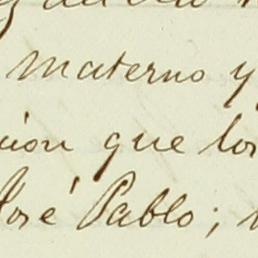 materno y
ción que los
José Pablo;